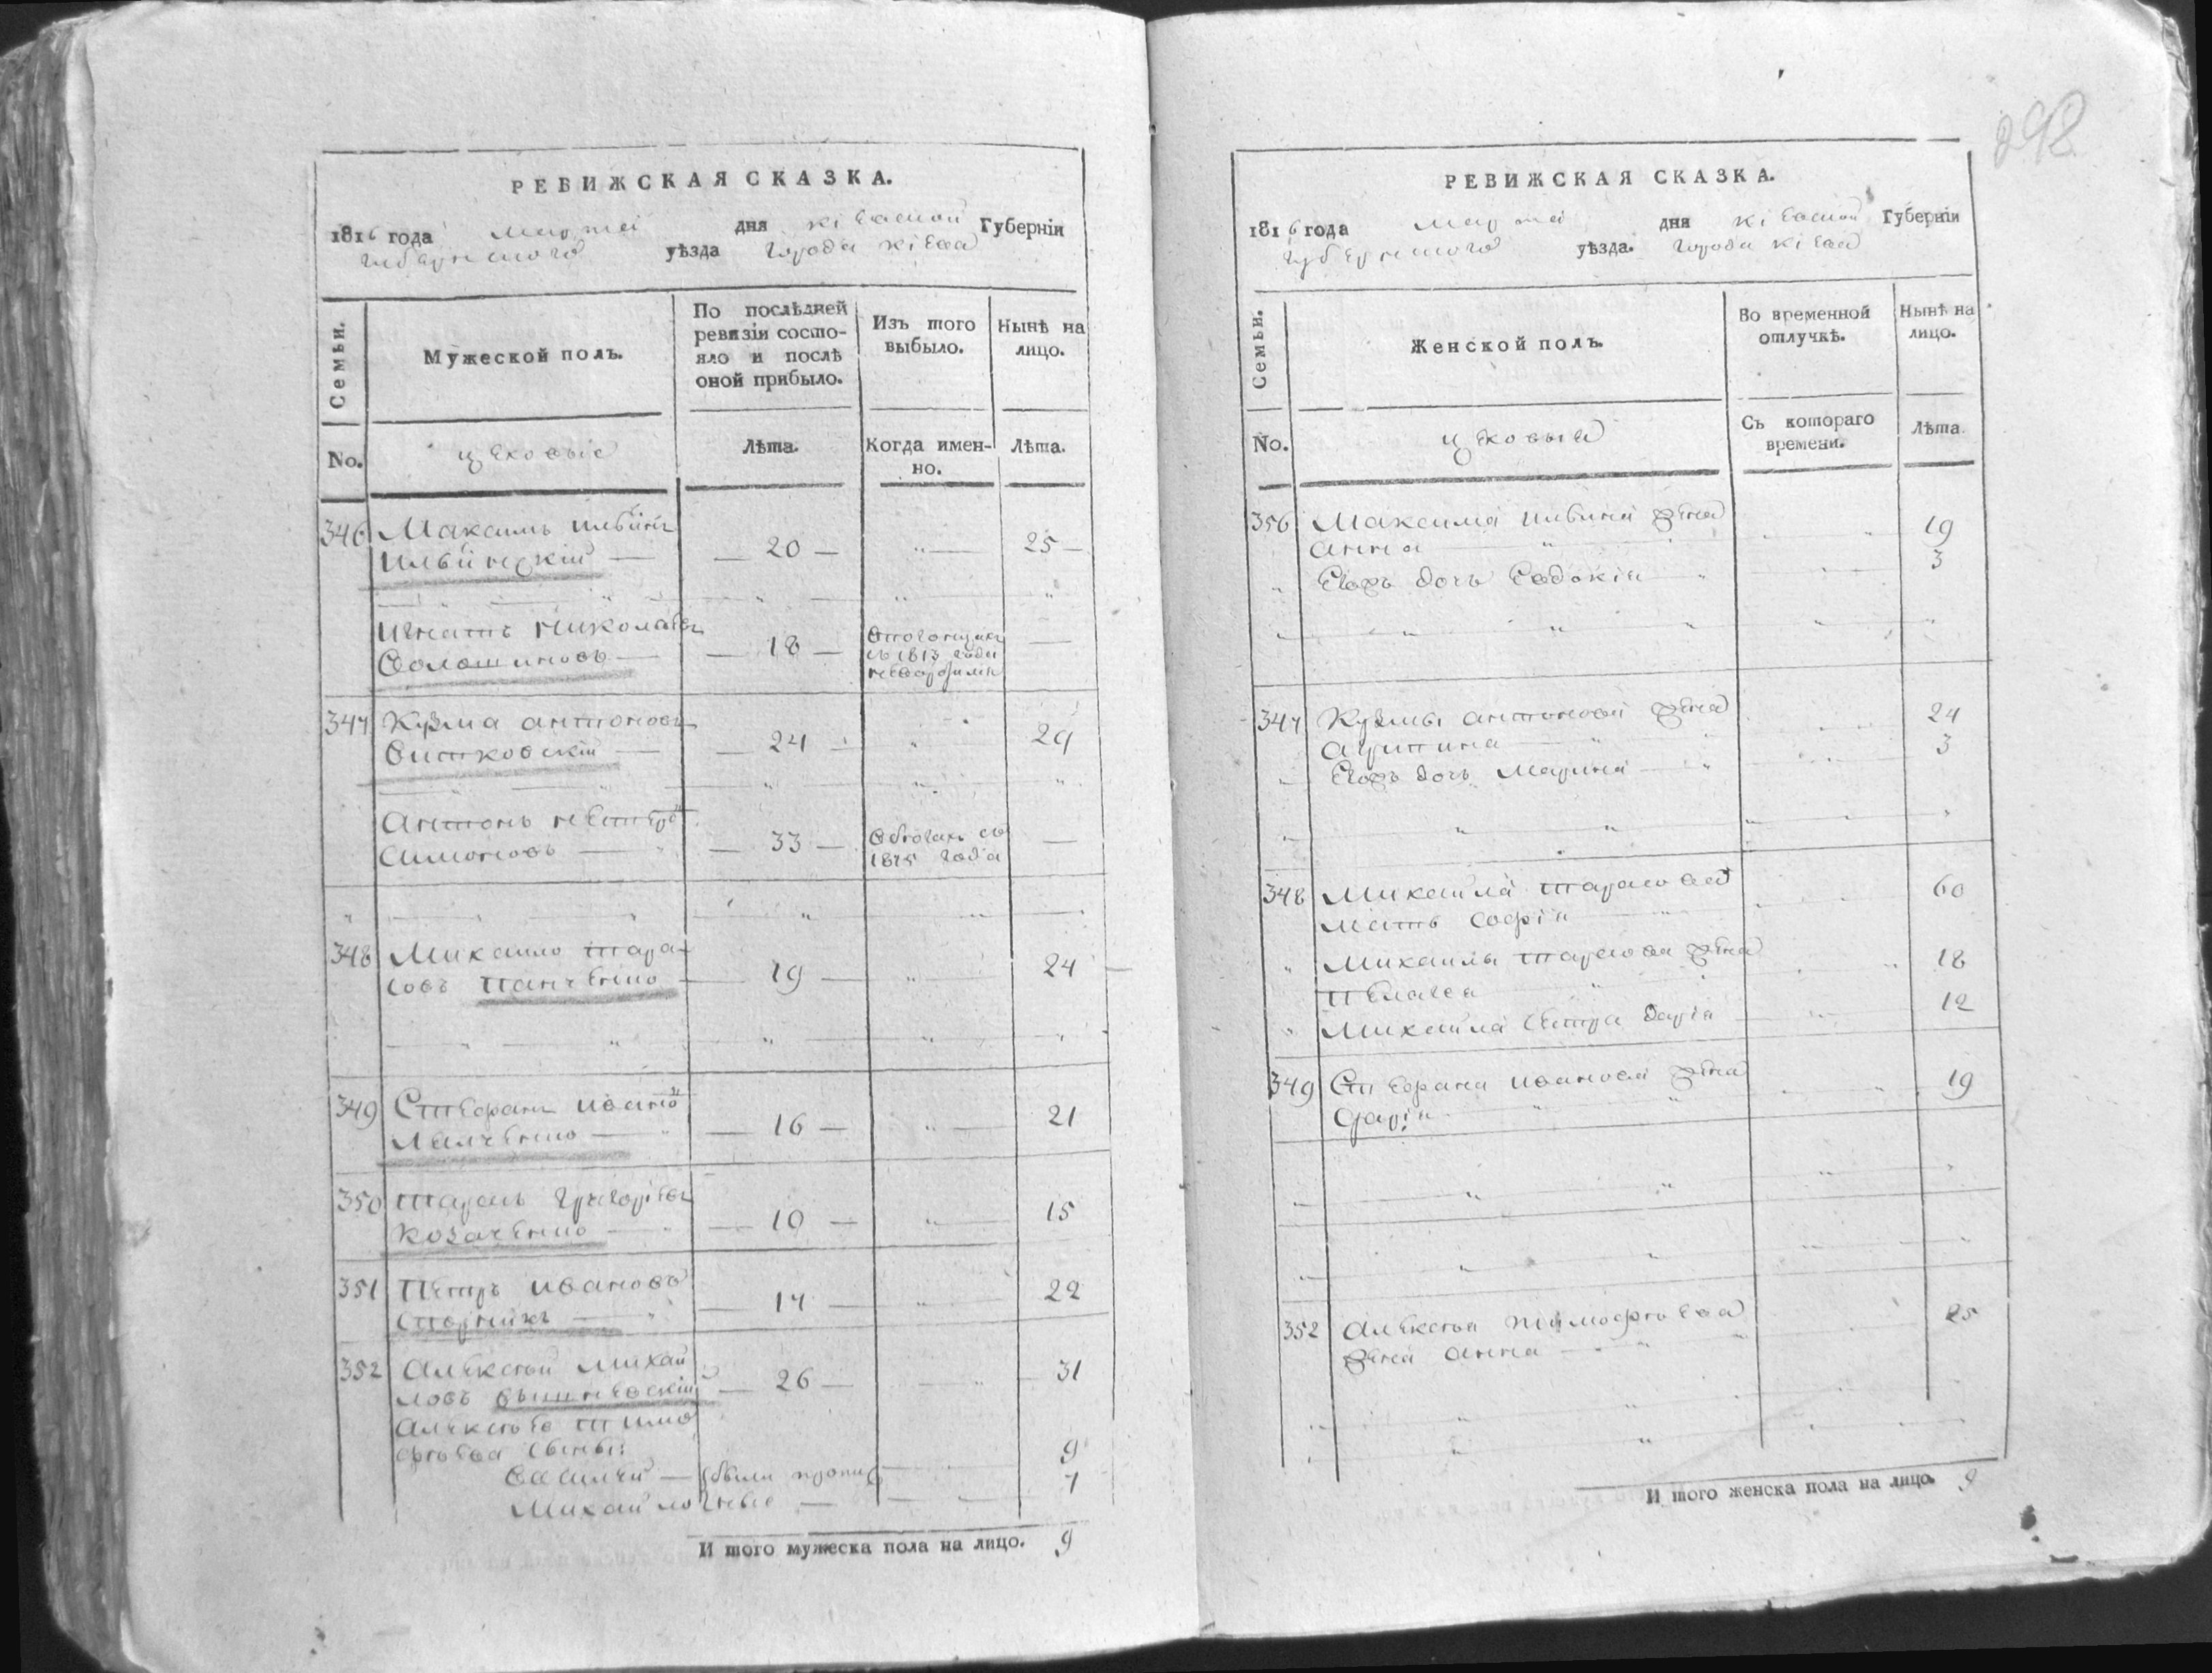 РЕВИЖСКАЯ СКАЗКА.
1816 года марта дня кіевской Губерніи
губернского уѣзда города кіева
Семьи.
Мужеской полъ.
По послѣдней ревизіи состояло и послѣ оной прибыло.
Изъ того выбыло.
Нынѣ на лицо.
No.
цеховые
Лѣта.
Когда именно.
Лѣта.
346 Максимъ ильинъ
ильинскій — 20 — 25
игнатъ николаевъ
волошиновъ — 18 —
съ 1813 года
347 Кузма антоновъ
витковскій — 24 29
антонъ нестеро
симоновъ — 33 —
1815 года
348 Михайло тара
совъ панченко — 19 — 24
349 Стефанъ ивано
— 16 — 21
350 тарасъ григорьевъ
козаченко — 10 — 15
351 Петръ ивановъ
— 17 — 22
352 алексѣй михай
ловъ вышневскій — 26 — 31
алексѣева тимо
фѣева сыны:
василій — были пропи 9
Михайло — 7
И того мужеска пола на лицо. 9
298
РЕВИЖСКАЯ СКАЗКА.
1816 года марта дня кіевской Губерніи
губернского уѣзда. города кіева
Семьи.
Женской полъ.
Во временной отлучкѣ.
Нынѣ на лицо.
No.
цеховые
Съ котораго времени.
Лѣта
356 Максима ильина жена
анна 19
Евожъ дочь Евдокія 3
347 Кузмы антонова жена
агрипина 24
Евожъ дочь Марина 3
348 Михайла тарасова
мать софія 60
Михайлы тарасова жена
пелагея 18
Михайла сестра дарія 12
349 Стефана иванова жена
19
352 алексѣя тимофѣева
жена анна 25
И того женска пола на лицо. 9